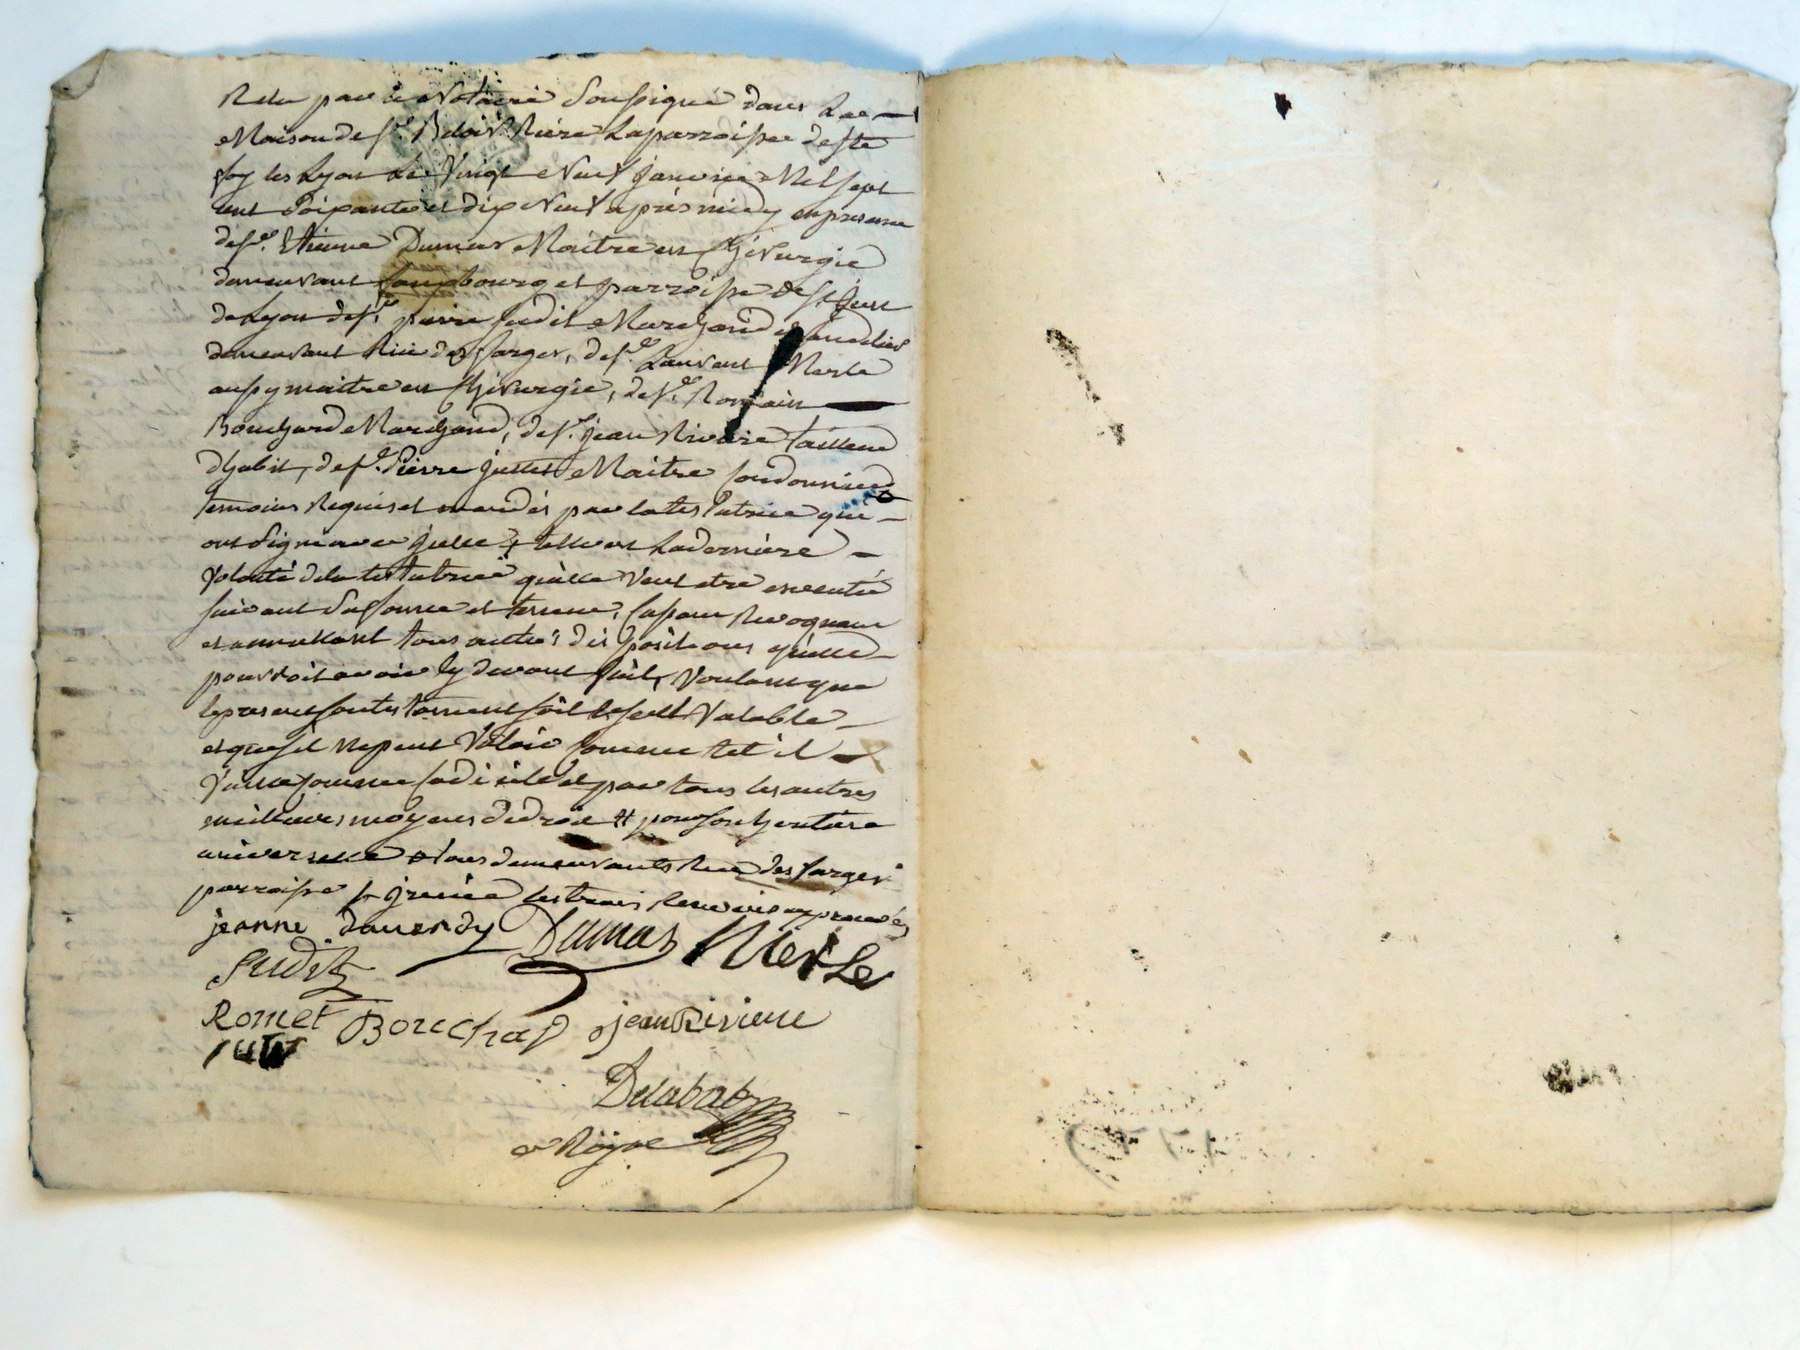 Relu par le Notaire soussigné dans La
Maison de sr. Riviere La parroisse de ste
foy les Lyon Le Vingt Neuf Janvier Mil sept
cent soixante et dix Neuf après midy en presence
de sr. Etienne Dumas Maitre en Chirurgie
demeurant faugbourg et parroisse de st Just
de Lyon de sr. pierre sudit Marchand
demeurant Rüe des farges, de sr. Laurent Merle
aussy maitre en Chirurgie, de sr. Romain
Bouchard Marchand, de sr. jean Riviere tailleur
d'habit, de sr. Pierre Maitre Cordonnier
temoins Requis et mandés par la testatrice qui
ont signé avec jcelle telle est La derniere
Volonté de la testatrice qu'elle Veut etre executée
suivant sa forme et teneur,
et annullant tous autres dispositions qu'elle
pourroit avoir cy devant fait, Voulant que
le present son testament soit Le seul Valable
et que s'il ne peut Valoir comme tel il
Vaille comme Codicille et par tous les autres
meilleurs moyens de droit # pour son heritiere
universelle tous demeurants Rue des farges
parroisse st jrenée les trois Renvois approuvés
jeanne Dumas Merle
Sudit
Romet Bouchard jean Riviere
Delabat
Nre Royal